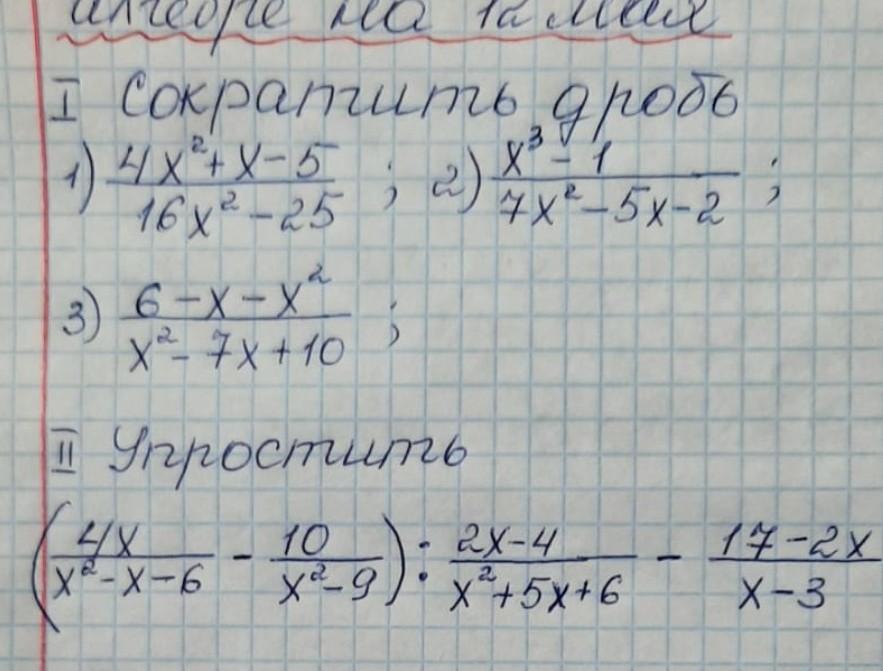 алгебре на 12 мая
I Сократить дробь
1) (4x²+x-5)/(16x²-25) ; 2) (x³-1)/(7x²-5x-2) ;
3) (6-x-x²)/(x²-7x+10) ;
II Упростить
(4x/(x²-x-6) - 10/(x²-9)) : (2x-4)/(x²+5x+6) - (17-2x)/(x-3)